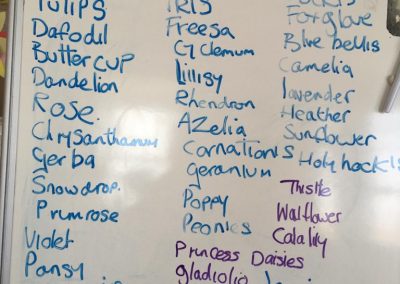 TULIPS
Daffodil
Butter cup
Dandelion
Rose.
Chrysanthamum
Gerba
Snowdrop.
Primrose
Violet
Pansy
IRIS
Freesa
Cyclemum
Lillisy
Rhendron
AZelia
Cornations
geranium
Poppy
Peonies
Princess Daisies
gladiolio
Foxglove
Blue bells
Camelia
lavender
Heather
Sunflower
Holyhocks
Thistle
Wallflower
Calalily